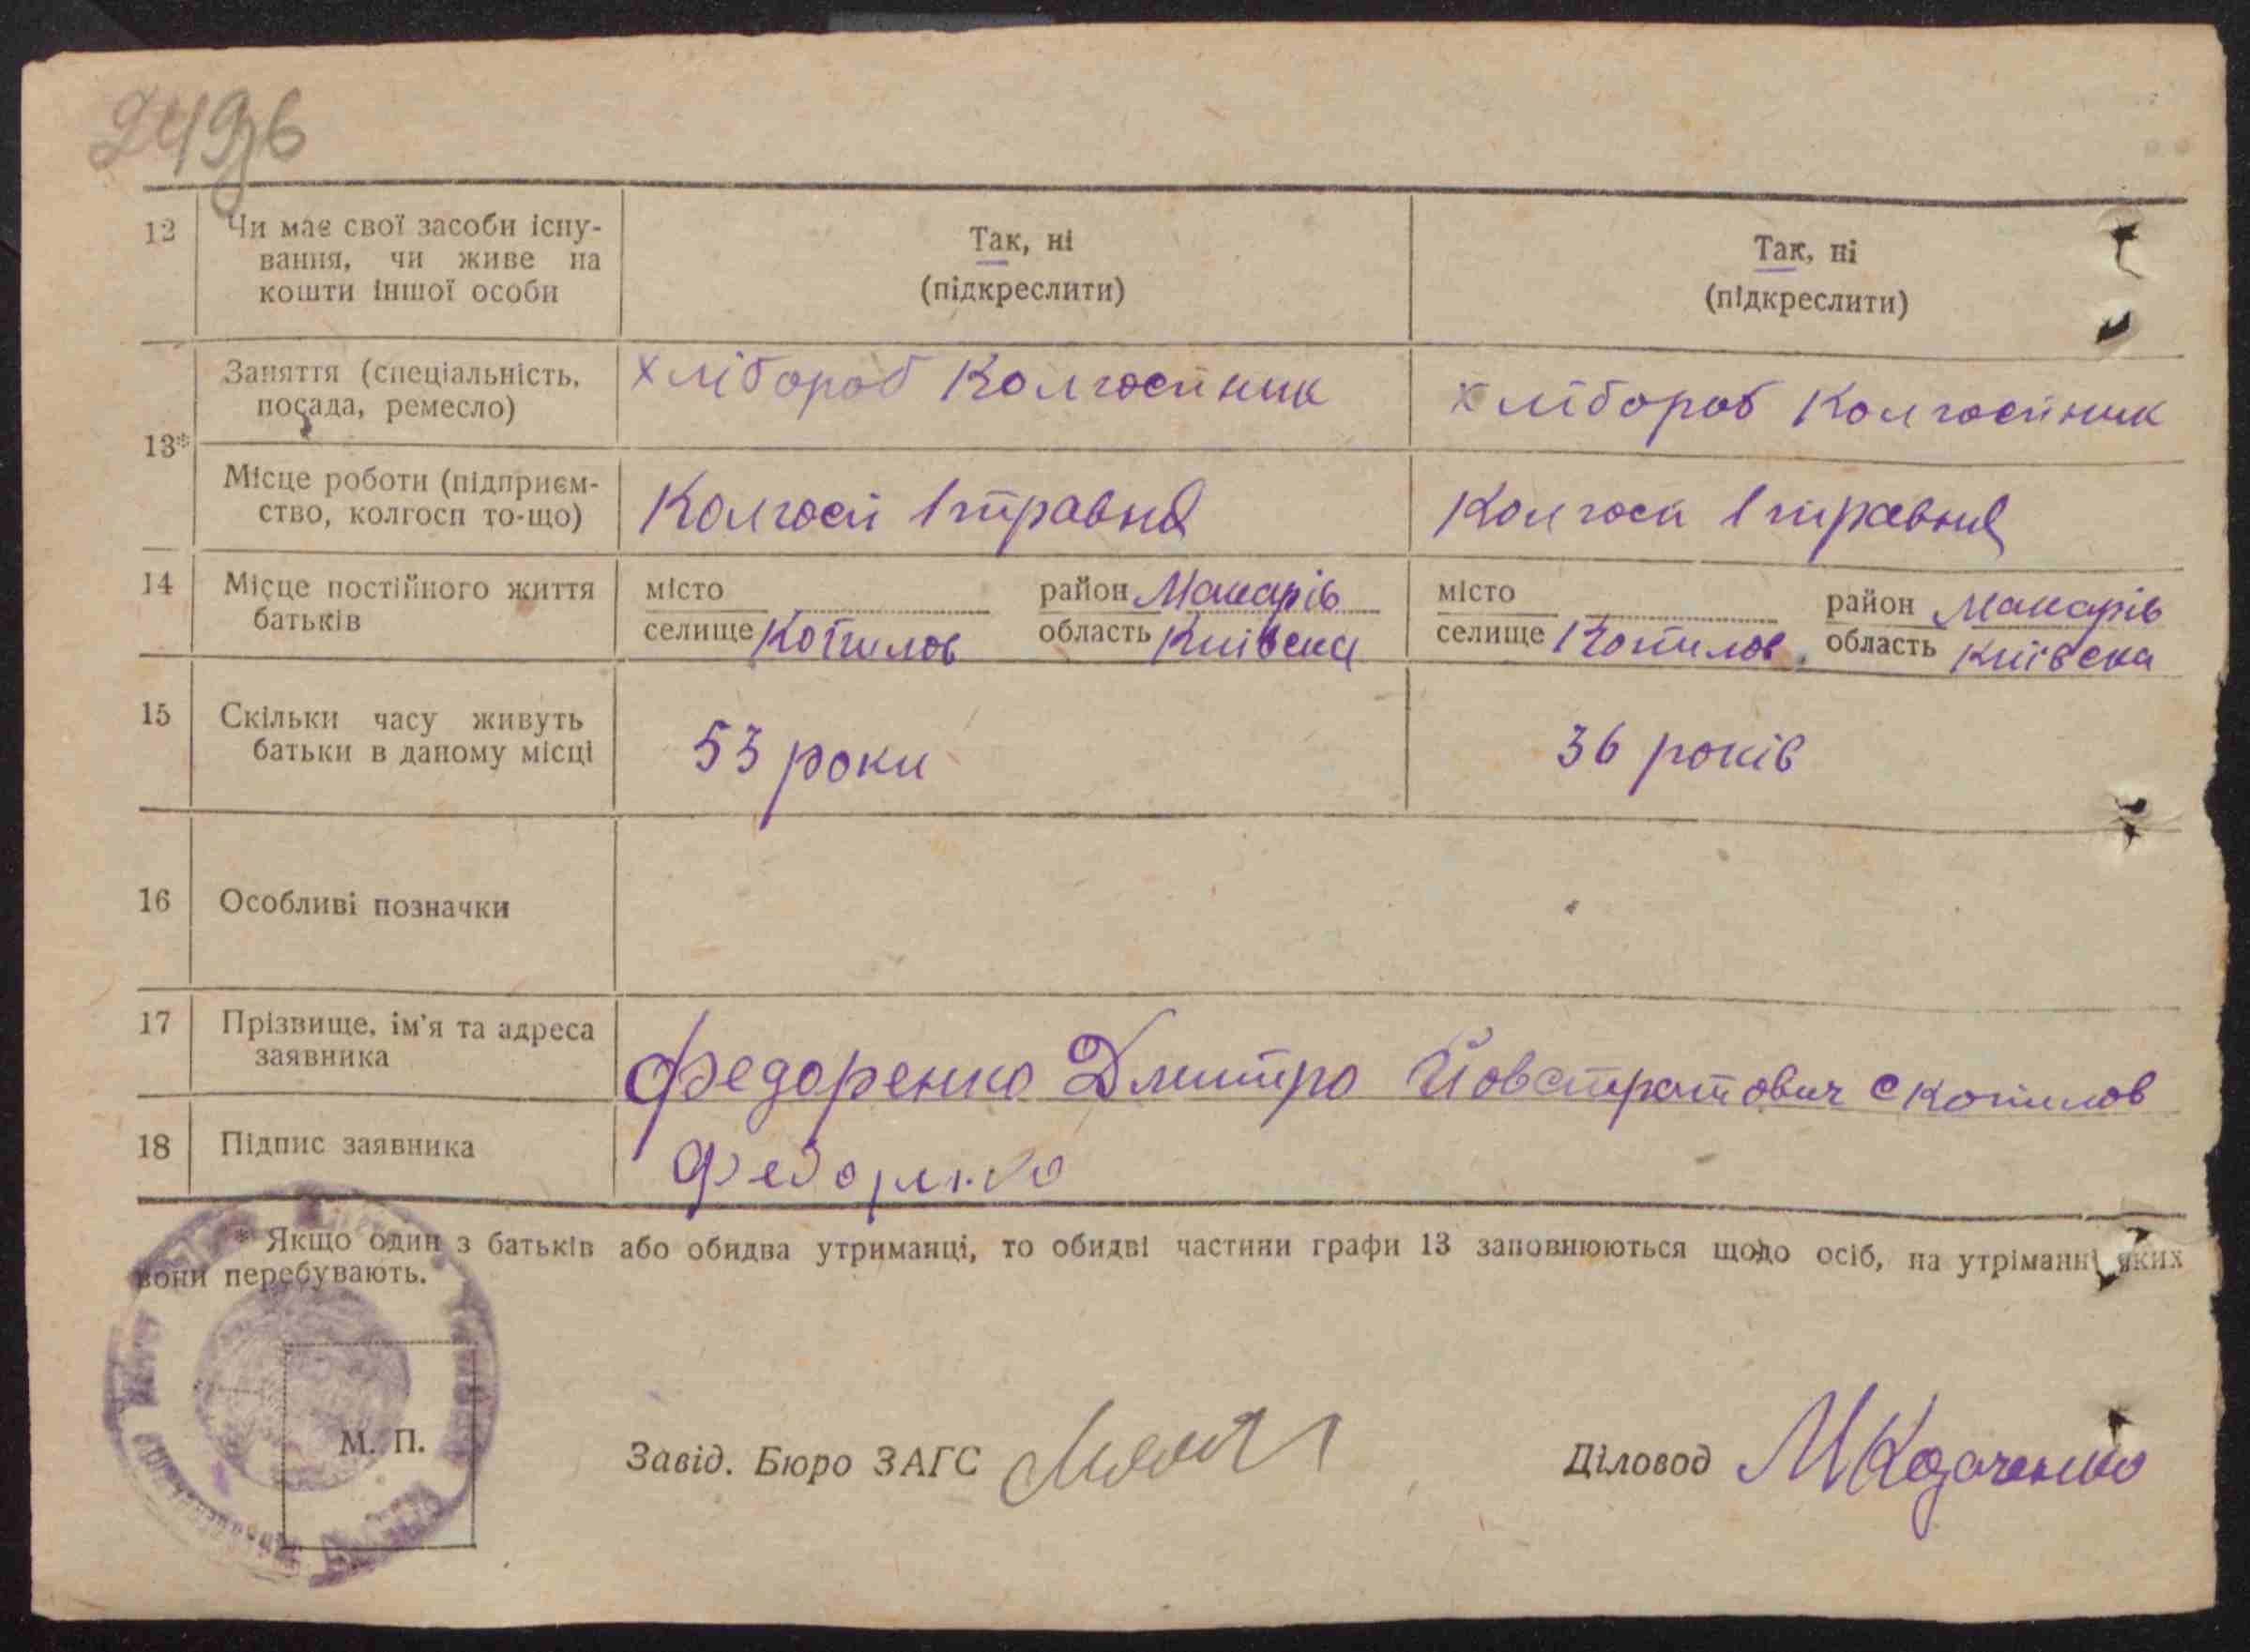 249зв
12 Чи має свої засоби існу- Так, ні Так, ні
вання, чи живе на (підкреслити) (підкреслити)
кошти іншої особи
13* Заняття (спеціальність, хлібороб Колгоспник хлібороб Колгоспник
посада, ремесло)
Місце роботи (підприєм- Колгосп 1 травня Колгосп 1 травня
ство, колгосп то-що)
14 Місце постійного життя місто район Макарів місто район Макарів
батьків селище Копилов область Київська селище Копилов область Київська
15 Скільки часу живуть 53 роки 36 років
батьки в даному місці
16 Особливі позначки
17 Прізвище, ім'я та адреса Федоренко Дмитро Йовстратович с Копилов
заявника
18 Підпис заявника Федоренко
* Якщо один з батьків або обидва утриманці, то обидві частини графи 13 заповнюються щодо осіб, на утріманні яких
вони перебувають.
М. П.
Завід. Бюро ЗАГС Діловод МКозаченко